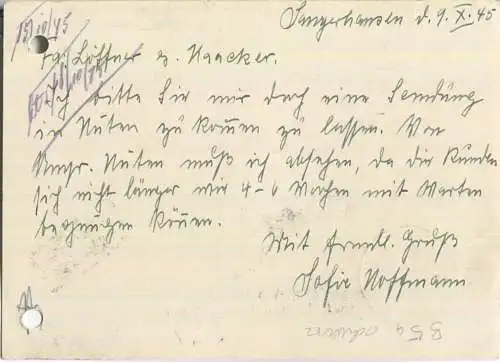 Sangerhausen d. 9. X. 45
15/10/45
Fa. Löffner & Naacker.
Ich bitte Sie mir doch eine Sendung
in Nuten zu kommen zu lassen. Von
Nuten muß ich absehen, da die Kunden
sich nicht länger wie 4-6 Wochen mit Warten
begnügen können.
Mit freundl. Gruß
Sofie Hoffmann